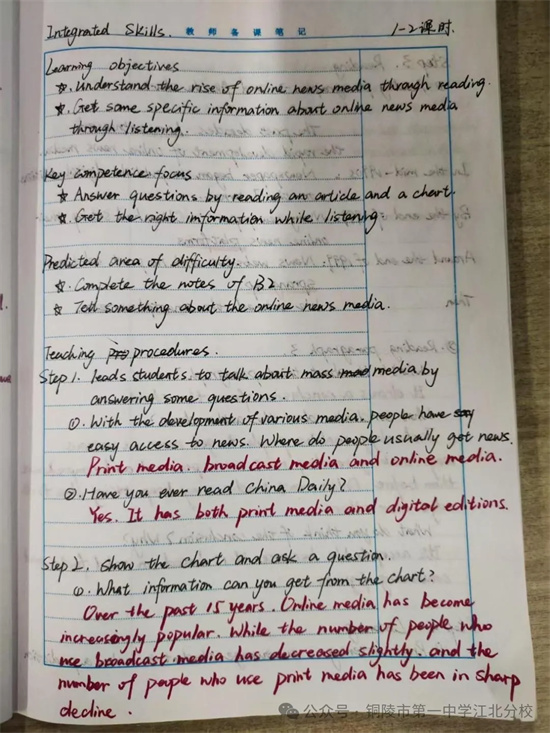 Integrated Skills. 教师备课笔记 1-2课时.
Learning objectives
☆. Understand the rise of online news media through reading.
☆. Get some specific information about online news media
through listening.
Key competence focus
☆ Answer questions by reading an article and a chart.
☆ Get the right imformation while listening
Predicted area of difficulty
☆. Complete the notes of B2
☆ Tell something about the online news media.
Teaching procedures.
Step 1. leads students to talk about mass media by
answering some questions.
①. With the development of various media. people have
easy access to news. Where do people usually get news.
Print media. broadcast media and online media.
②. Have you ever read China Daily?
Yes. It has both print media and digital editions.
Step 2. show the chart and ask a question.
①. What information can you get from the chart?
Over the past 15 years. Online media has become
increasingly popular. While the number of people who
use broadcast media has decreased slightly. and the
number of people who use print media has been in sharp
decline.
公众号·铜陵市第一中学江北分校